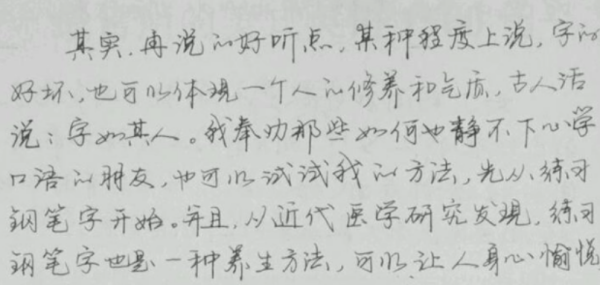 其实,再说的好听点,某种程度上说,字的
好坏,也可以体现一个人的修养和气质,古人活
说:字如其人。我奉劝那些如何也静不下心学
口语的朋友,也可以试试我的方法,先从练习
钢笔字开始。并且,从近代医学研究发现,练习
钢笔字也是一种养生方法,可以让人身心愉悦